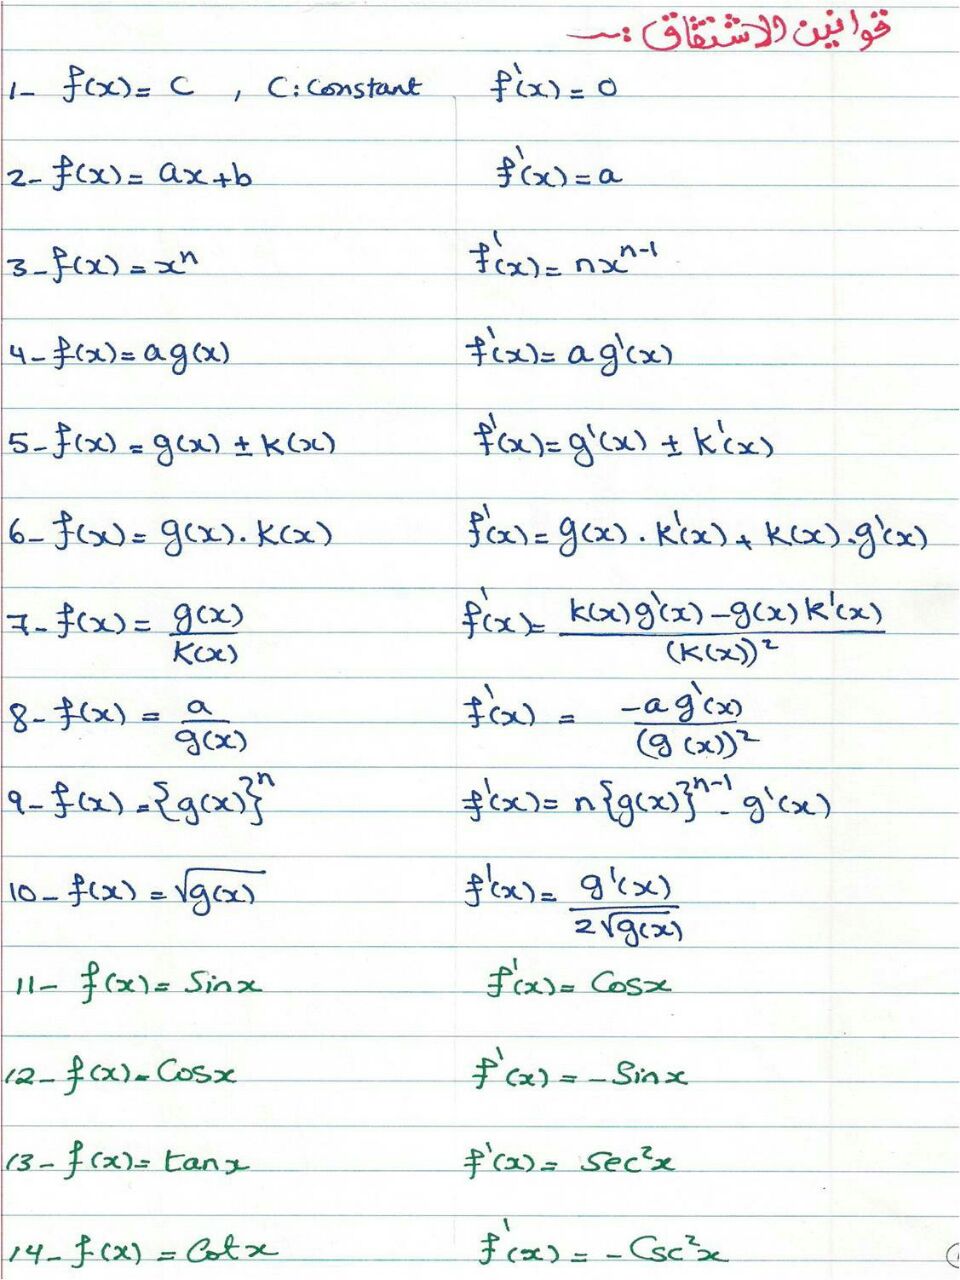 قوانين الاشتقاق :~
1- f(x) = C , C: Constant f'(x) = 0
2- f(x) = ax+b f'(x) = a
3- f(x) = xⁿ f'(x) = nxⁿ⁻¹
4- f(x) = a g(x) f'(x) = a g'(x)
5- f(x) = g(x) ± k(x) f'(x) = g'(x) ± k'(x)
6- f(x) = g(x) . k(x) f'(x) = g(x) . k'(x) + k(x) . g'(x)
7- f(x) = g(x)/k(x) f'(x) = k(x)g'(x) - g(x)k'(x)/(k(x))²
8- f(x) = a/g(x) f'(x) = -a g'(x)/(g(x))²
9- f(x) = {g(x)}ⁿ f'(x) = n{g(x)}ⁿ⁻¹ . g'(x)
10- f(x) = √g(x) f'(x) = g'(x)/2√g(x)
11- f(x) = Sinx f'(x) = Cosx
12- f(x) = Cosx f'(x) = -Sinx
13- f(x) = tanx f'(x) = Sec²x
14- f(x) = Cotx f'(x) = -Csc²x